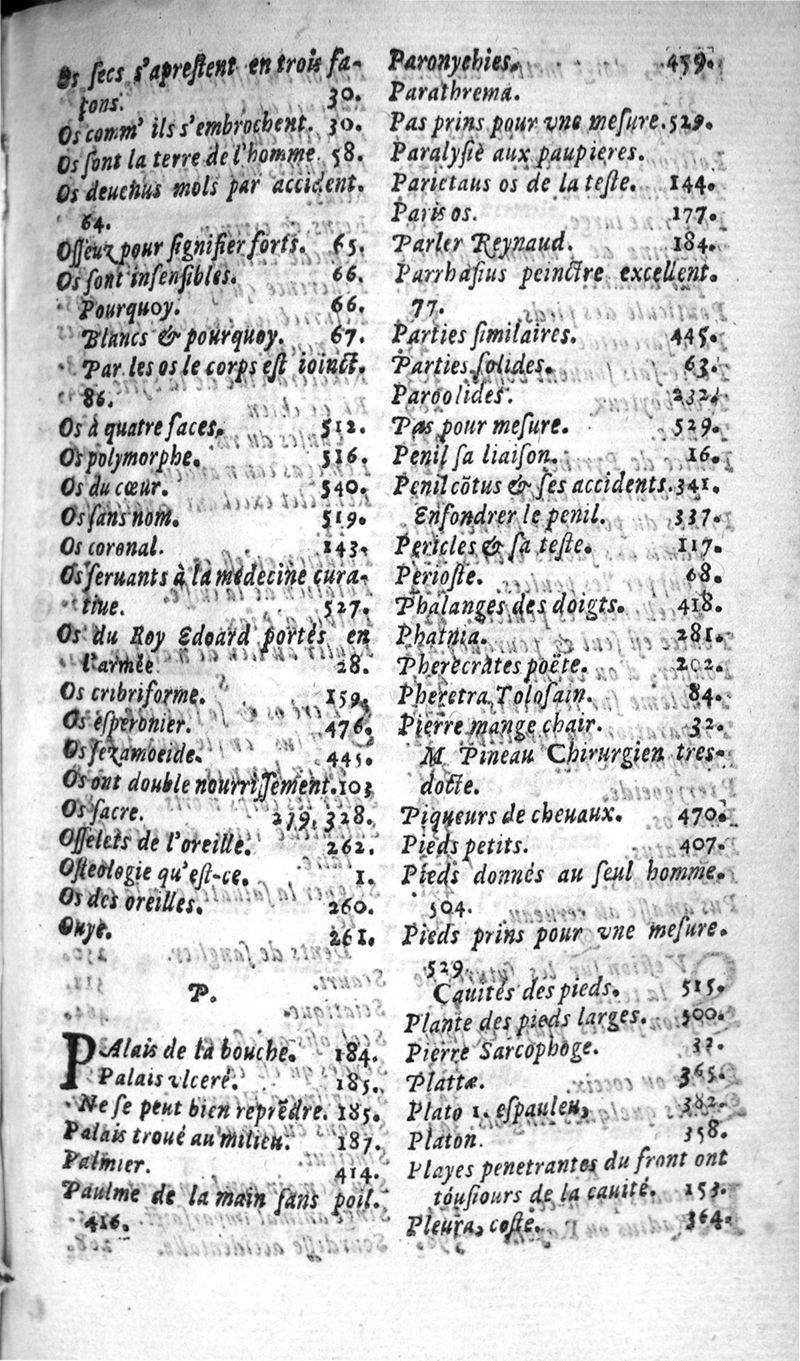 Os secs s'aprestent en trois fa-
çons. 30.
Os comm' ils s'embrochent. 30.
Os sont la terre de l'homme. 58.
Os deuenus mols par accident.
64.
Osseux pour signifier forts. 65.
Os sont insensibles. 66.
Pourquoy. 66.
Blancs & pourquoy. 67.
Par les os le corps est ioinct.
86.
Os à quatre faces. 512.
Os polymorphe. 516.
Os du cœur. 540.
Os sans nom. 519.
Os coronal. 143.
Os seruants à la medecine cura-
tiue. 527.
Os du Roy Edoard portés en
l'armée. 28.
Os cribriforme. 159.
Os esperonier. 476.
Os sezamoeide. 445.
Os ont double nourrissement. 103
Os sacre. 279. 328.
Osselets de l'oreille. 262.
Osteologie qu'est-ce. 1.
Os des oreilles. 260.
Ouye. 261.
P.
PAlais de la bouche. 184.
Palais vlceré. 185.
Ne se peut bien reprẽdre. 185.
Palais troué au milieu. 187.
Palmier. 414.
Paulme de la main sans poil.
416.
Paronychies. 459.
Parathrema.
Pas prins pour vne mesure. 529.
Paralysie aux paupieres.
Parietaus os de la teste. 144.
Paris os. 177.
Parler Reynaud. 184.
Parrhasius peinctre excellent.
77.
Parties similaires. 445.
Parties solides. 63.
Parootides. 232.
Pas pour mesure. 529.
Penil sa liaison. 16.
Penil cõtus & ses accidents. 341.
Enfondrer le penil. 337.
Pericles & sa teste. 117.
Perioste. 68.
Phalanges des doigts. 418.
Phatnia. 281.
Pherecrates poëte. 202.
Pheretra Tolosain. 84.
Pierre mange chair. 32.
M. Pineau Chirurgien tres-
docte.
Piqueurs de cheuaux. 470.
Pieds petits. 407.
Pieds donnés au seul homme.
504.
Pieds prins pour vne mesure.
529.
Cauités des pieds. 515.
Plante des pieds larges. 500.
Pierre Sarcophoge. 32.
Plattæ. 365.
Plato 1. espauleu, 382.
Platon. 358.
Playes penetrantes du front ont
tousiours de la cauité. 153.
Pleura, coste. 364.